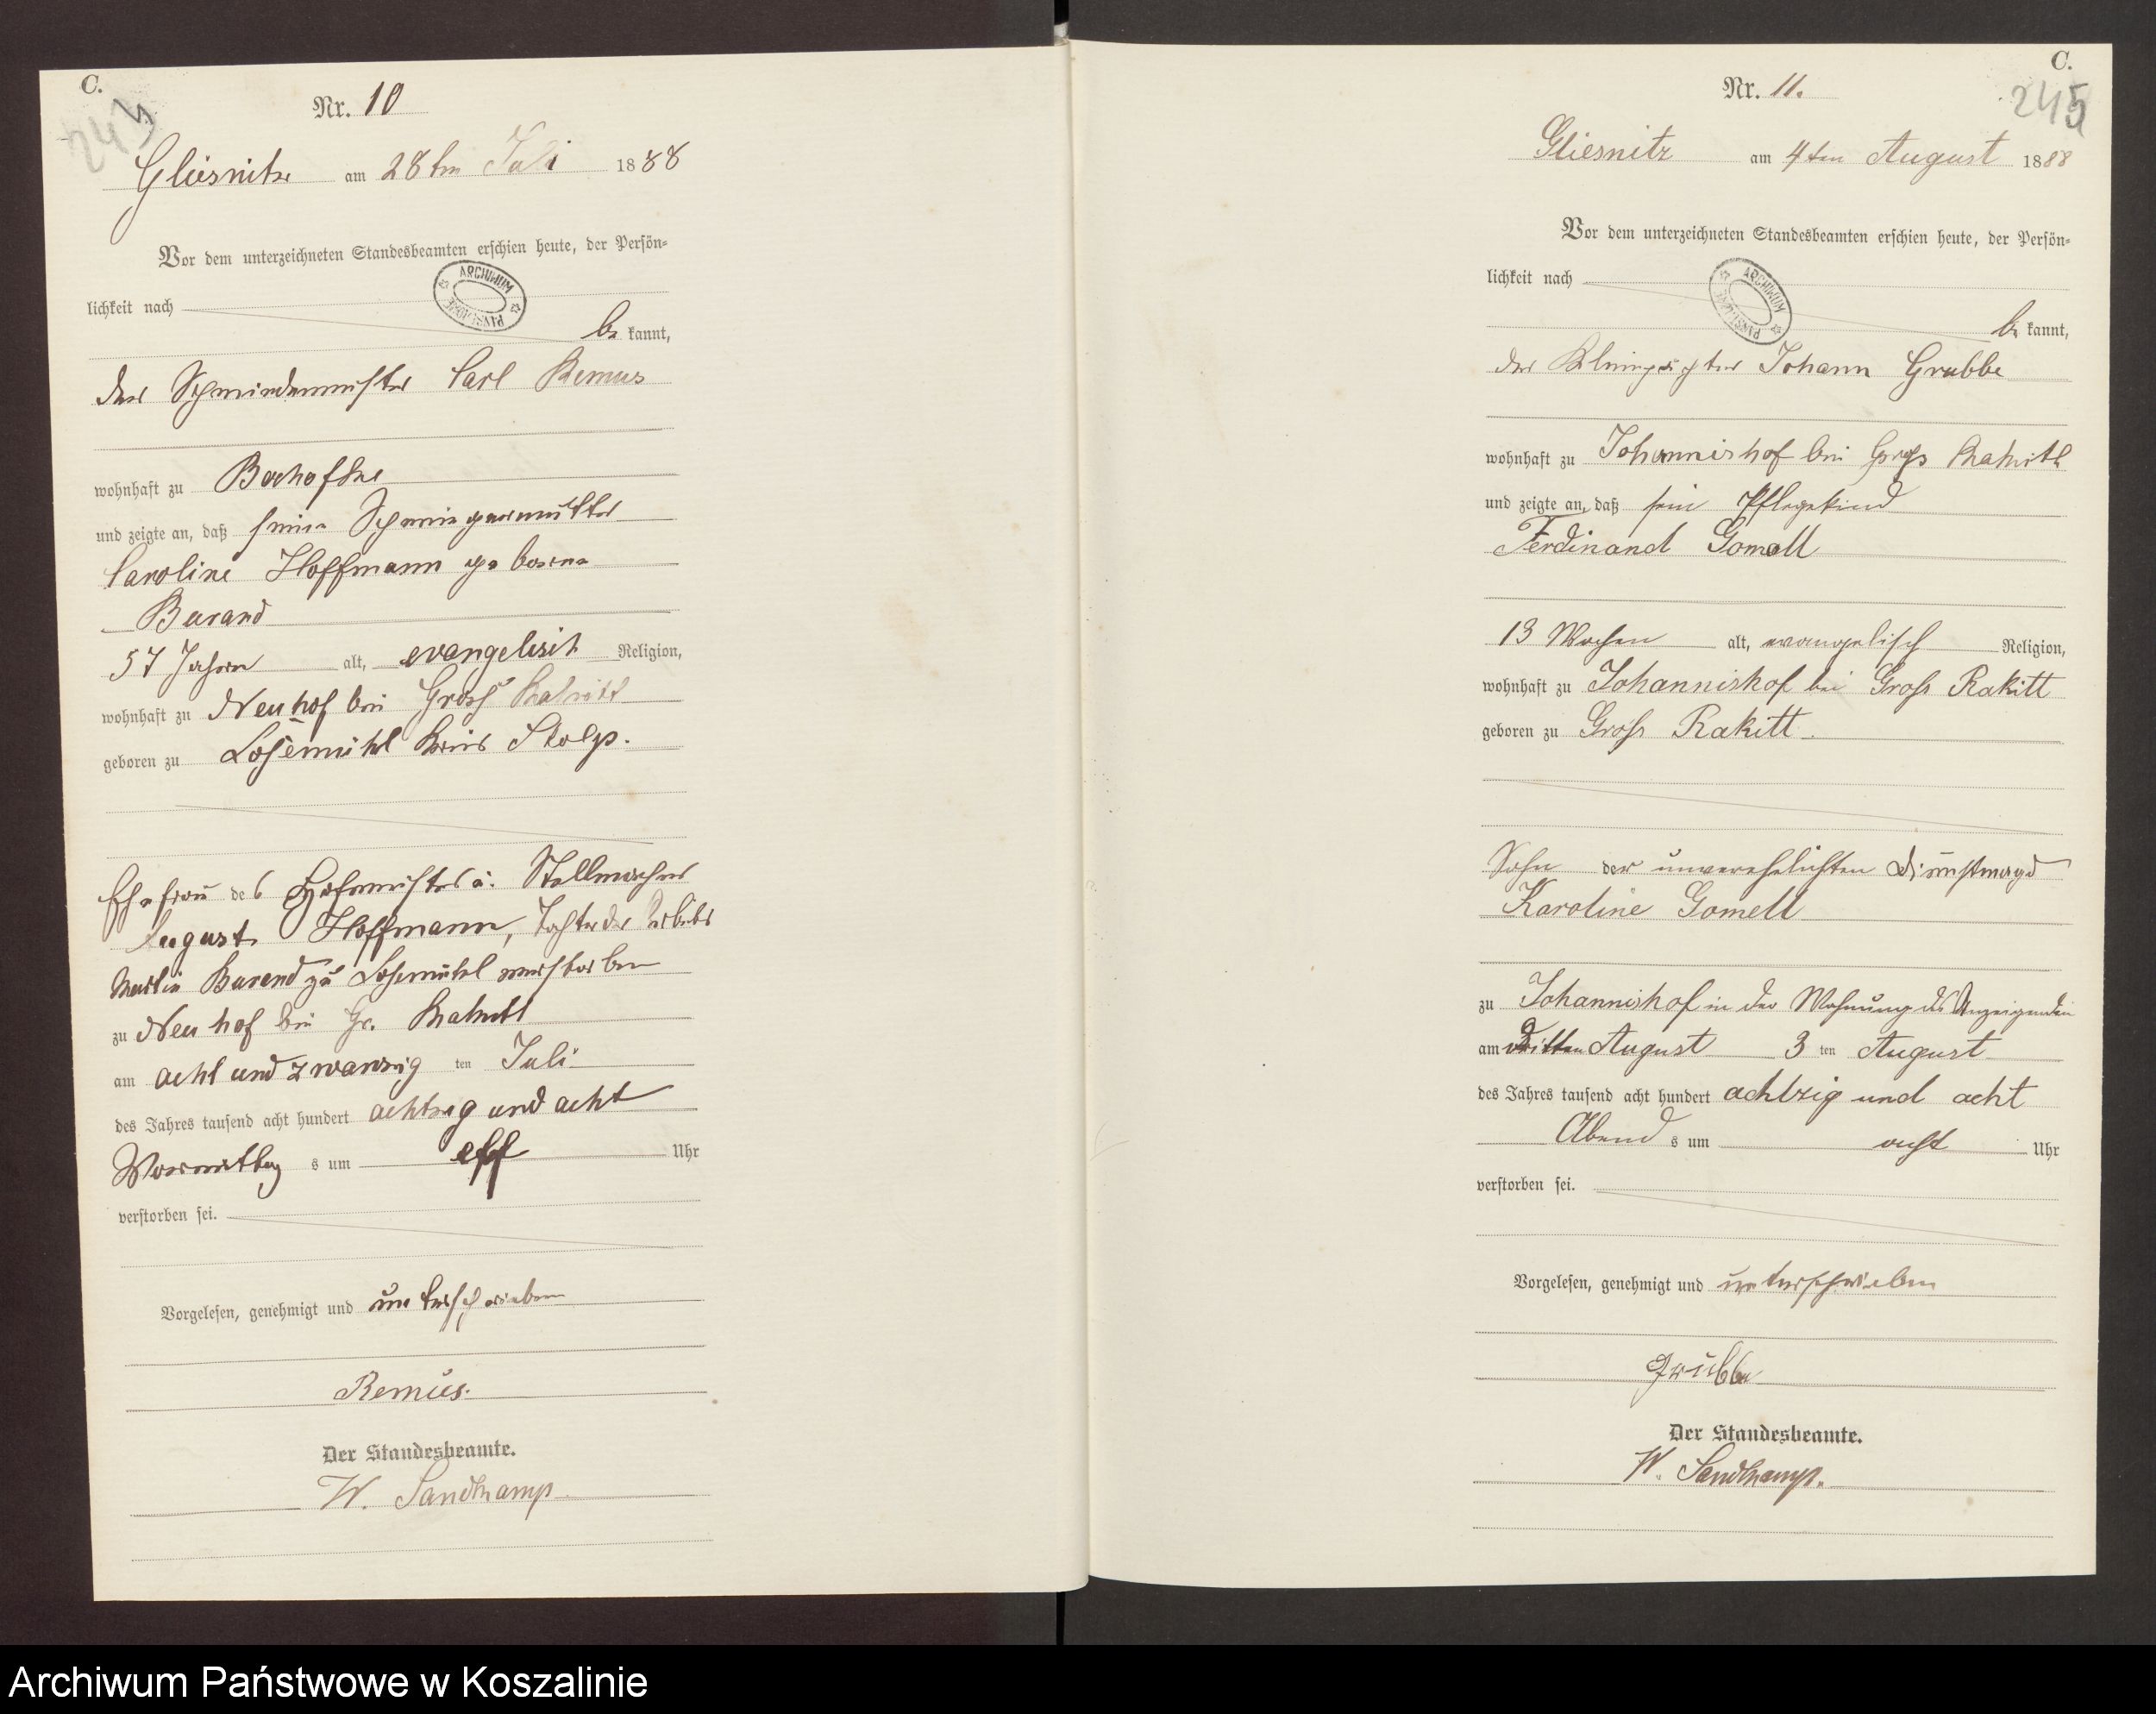 C.
Nr. 10
Gliesnitz am 28ten Juli 1888
Vor dem unterzeichneten Standesbeamten erschien heute, der Persön-
lichkeit nach
ARCHIWUM PAŃSTWOWE
be kannt,
der Schmiedemeister Carl Remus
wohnhaft zu
und zeigte an, daß seine Schwiegermutter
Caroline Hoffmann geborne
Barand
57 Jahre alt, evangelisch Religion,
wohnhaft zu Neuhof bei Gross Rakitt
geboren zu Losemühl Kreis Stolp.
Ehefrau des Hofmeister u. Stellmacher
August Hoffmann, Tochter des
Martin Barand zu Losemühl verstorben
zu Neuhof bei Gr. Rakitt
am acht und zwanzig ten Juli
des Jahres tausend acht hundert achtzig und acht
Vormittag s um elf Uhr
verstorben sei.
Vorgelesen, genehmigt und unterschrieben
Remus.
Der Standesbeamte.
W. Sandkamp
C.
245
Nr. 11.
Gliesnitz am 4ten August 1888
Vor dem unterzeichneten Standesbeamten erschien heute, der Persön-
lichkeit nach
ARCHIWUM PAŃSTWOWE
be kannt,
der Johann Grubbe
wohnhaft zu Johannishof bei Gross Rakitt
und zeigte an, daß sein Pflegekind
Ferdinand Gomell
13 Wochen alt, evangelisch Religion,
wohnhaft zu Johannishof bei Gross Rakitt
geboren zu Gross Rakitt.
Sohn der unverehelichten Dienstmagd
Karoline Gomell
zu Johannishof in der Wohnung des Anzeigenden
am dritten August 3 ten August
des Jahres tausend acht hundert achtzig und acht
Abend s um acht Uhr
verstorben sei.
Vorgelesen, genehmigt und unterschrieben
Grubbe
Der Standesbeamte.
W. Sandkamp.
Archiwum Państwowe w Koszalinie